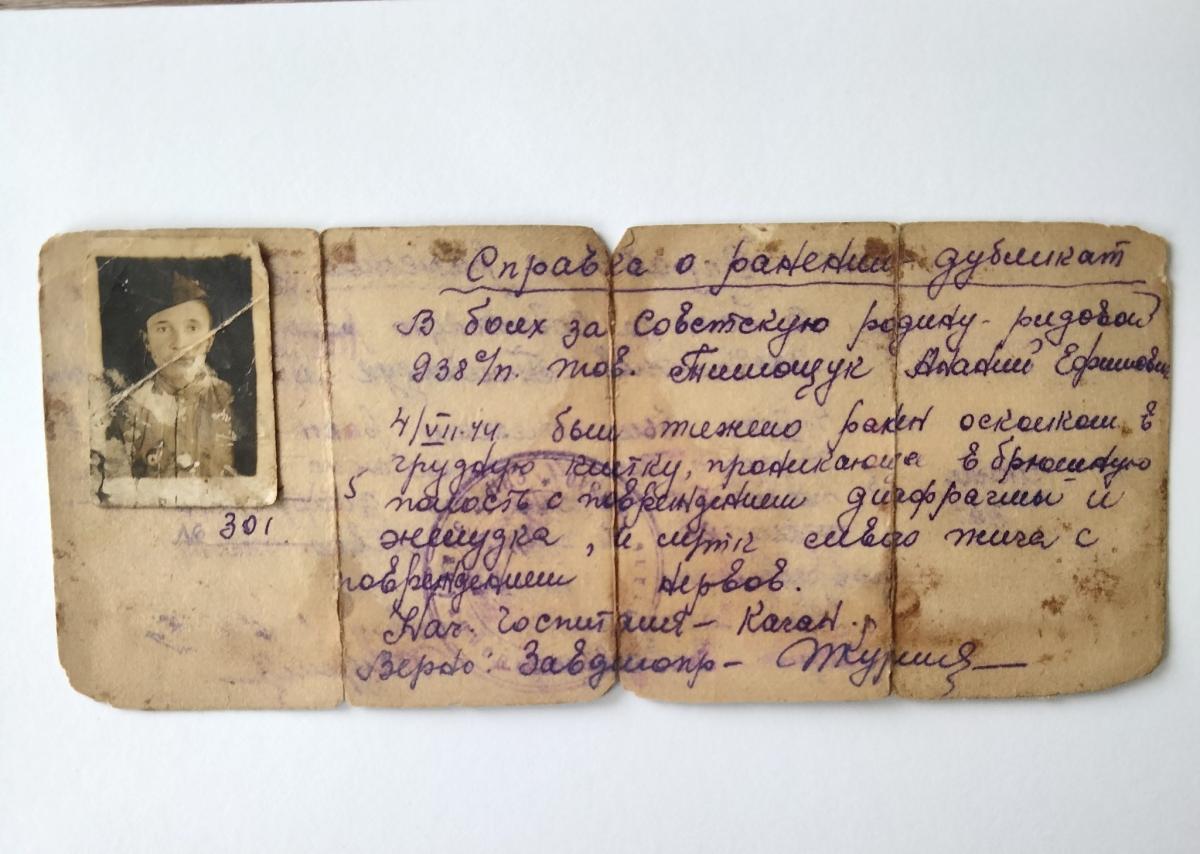 Справка о ранении дубликат
В боях за Советскую родину - рядовой
938 с/п. тов. Тимощук Ананий Ефимович
4/VII-44 был тяжело ранен осколком в
грудную клетку, проникающие в брюшную
полость с повреждением диафрагмы и
желудка, и левого плеча с
повреждением нервов.
301.
Нач. госпиталя - Каган.
Верно: Завделопр -